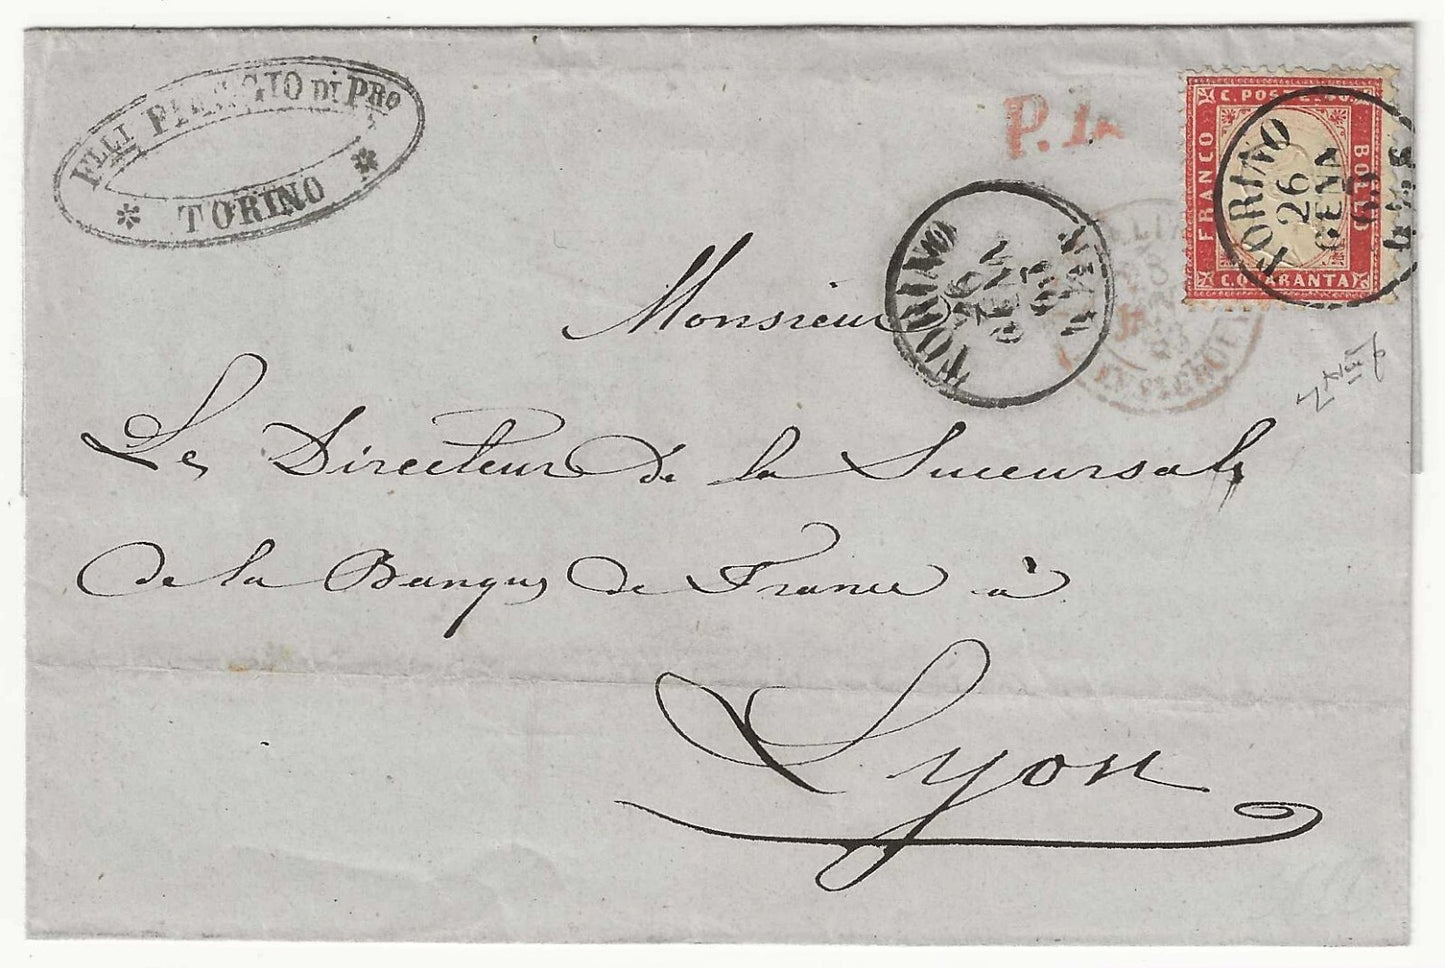 FLLI DI PRO
TORINO
P.
C. POSTE
FRANCO
BOLLO
C. QUARANTA
TORINO
26
GEN
63
TORINO
26
GEN
63
Monsieur
Le Directeur de la Succursale
de la Banque de France à
Lyon